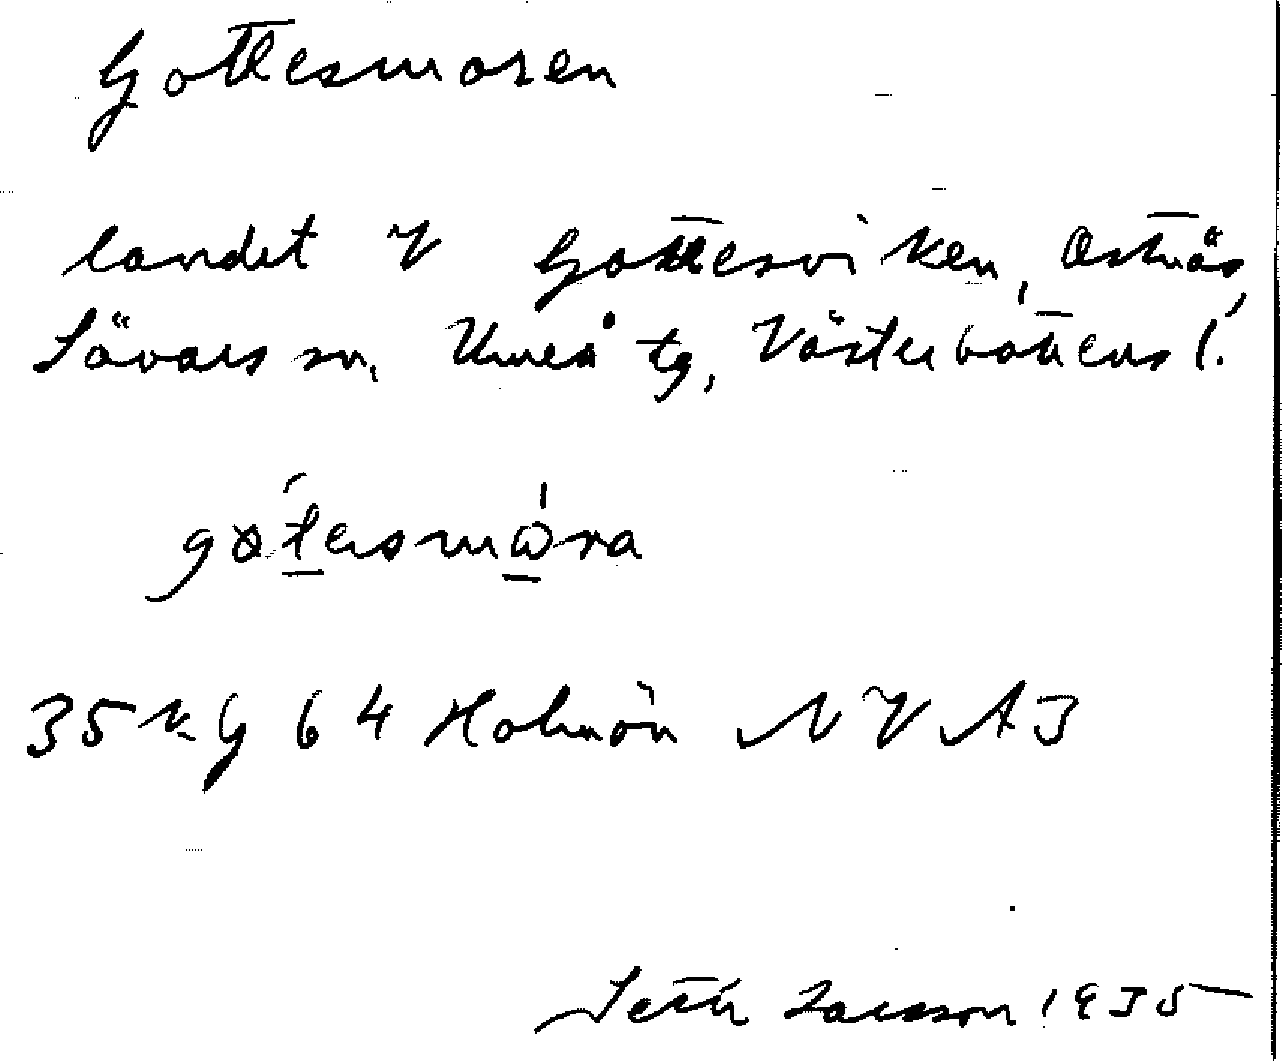 Gottesmoren
landet V Gottesviken, Ostnäs,
Sävars sn, Umeå tg, Västerbottens l.
35 kg 64 Holmön NV A3
Seth Larsson 1935